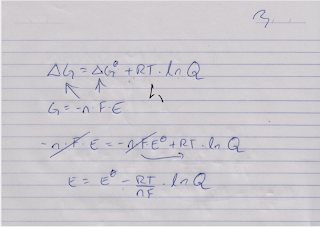 3.
ΔG = ΔG° + RT · ln Q
G = -n · F · E
-n · F · E = -n F E° + RT · ln Q
E = E° - RT/nF · ln Q